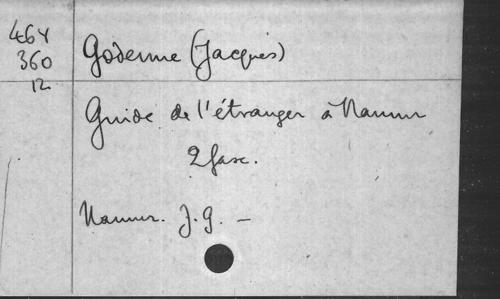 464
360
12
Godenne (Jacques)
Guide de l'étranger à Namur
2 fasc.
Namur. J. G. –